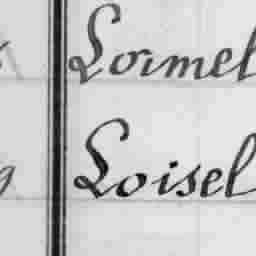 Lormel
Loisel